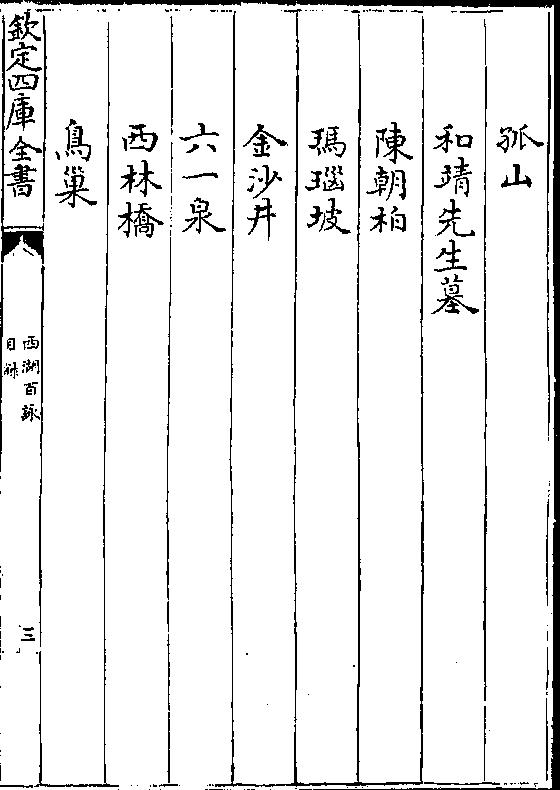 孤山
和靖先生墓
陳朝柏
瑪瑙坡
金沙井
六一泉
西林橋
鳥巢
欽定四庫全書
西湖百詠
目錄
三